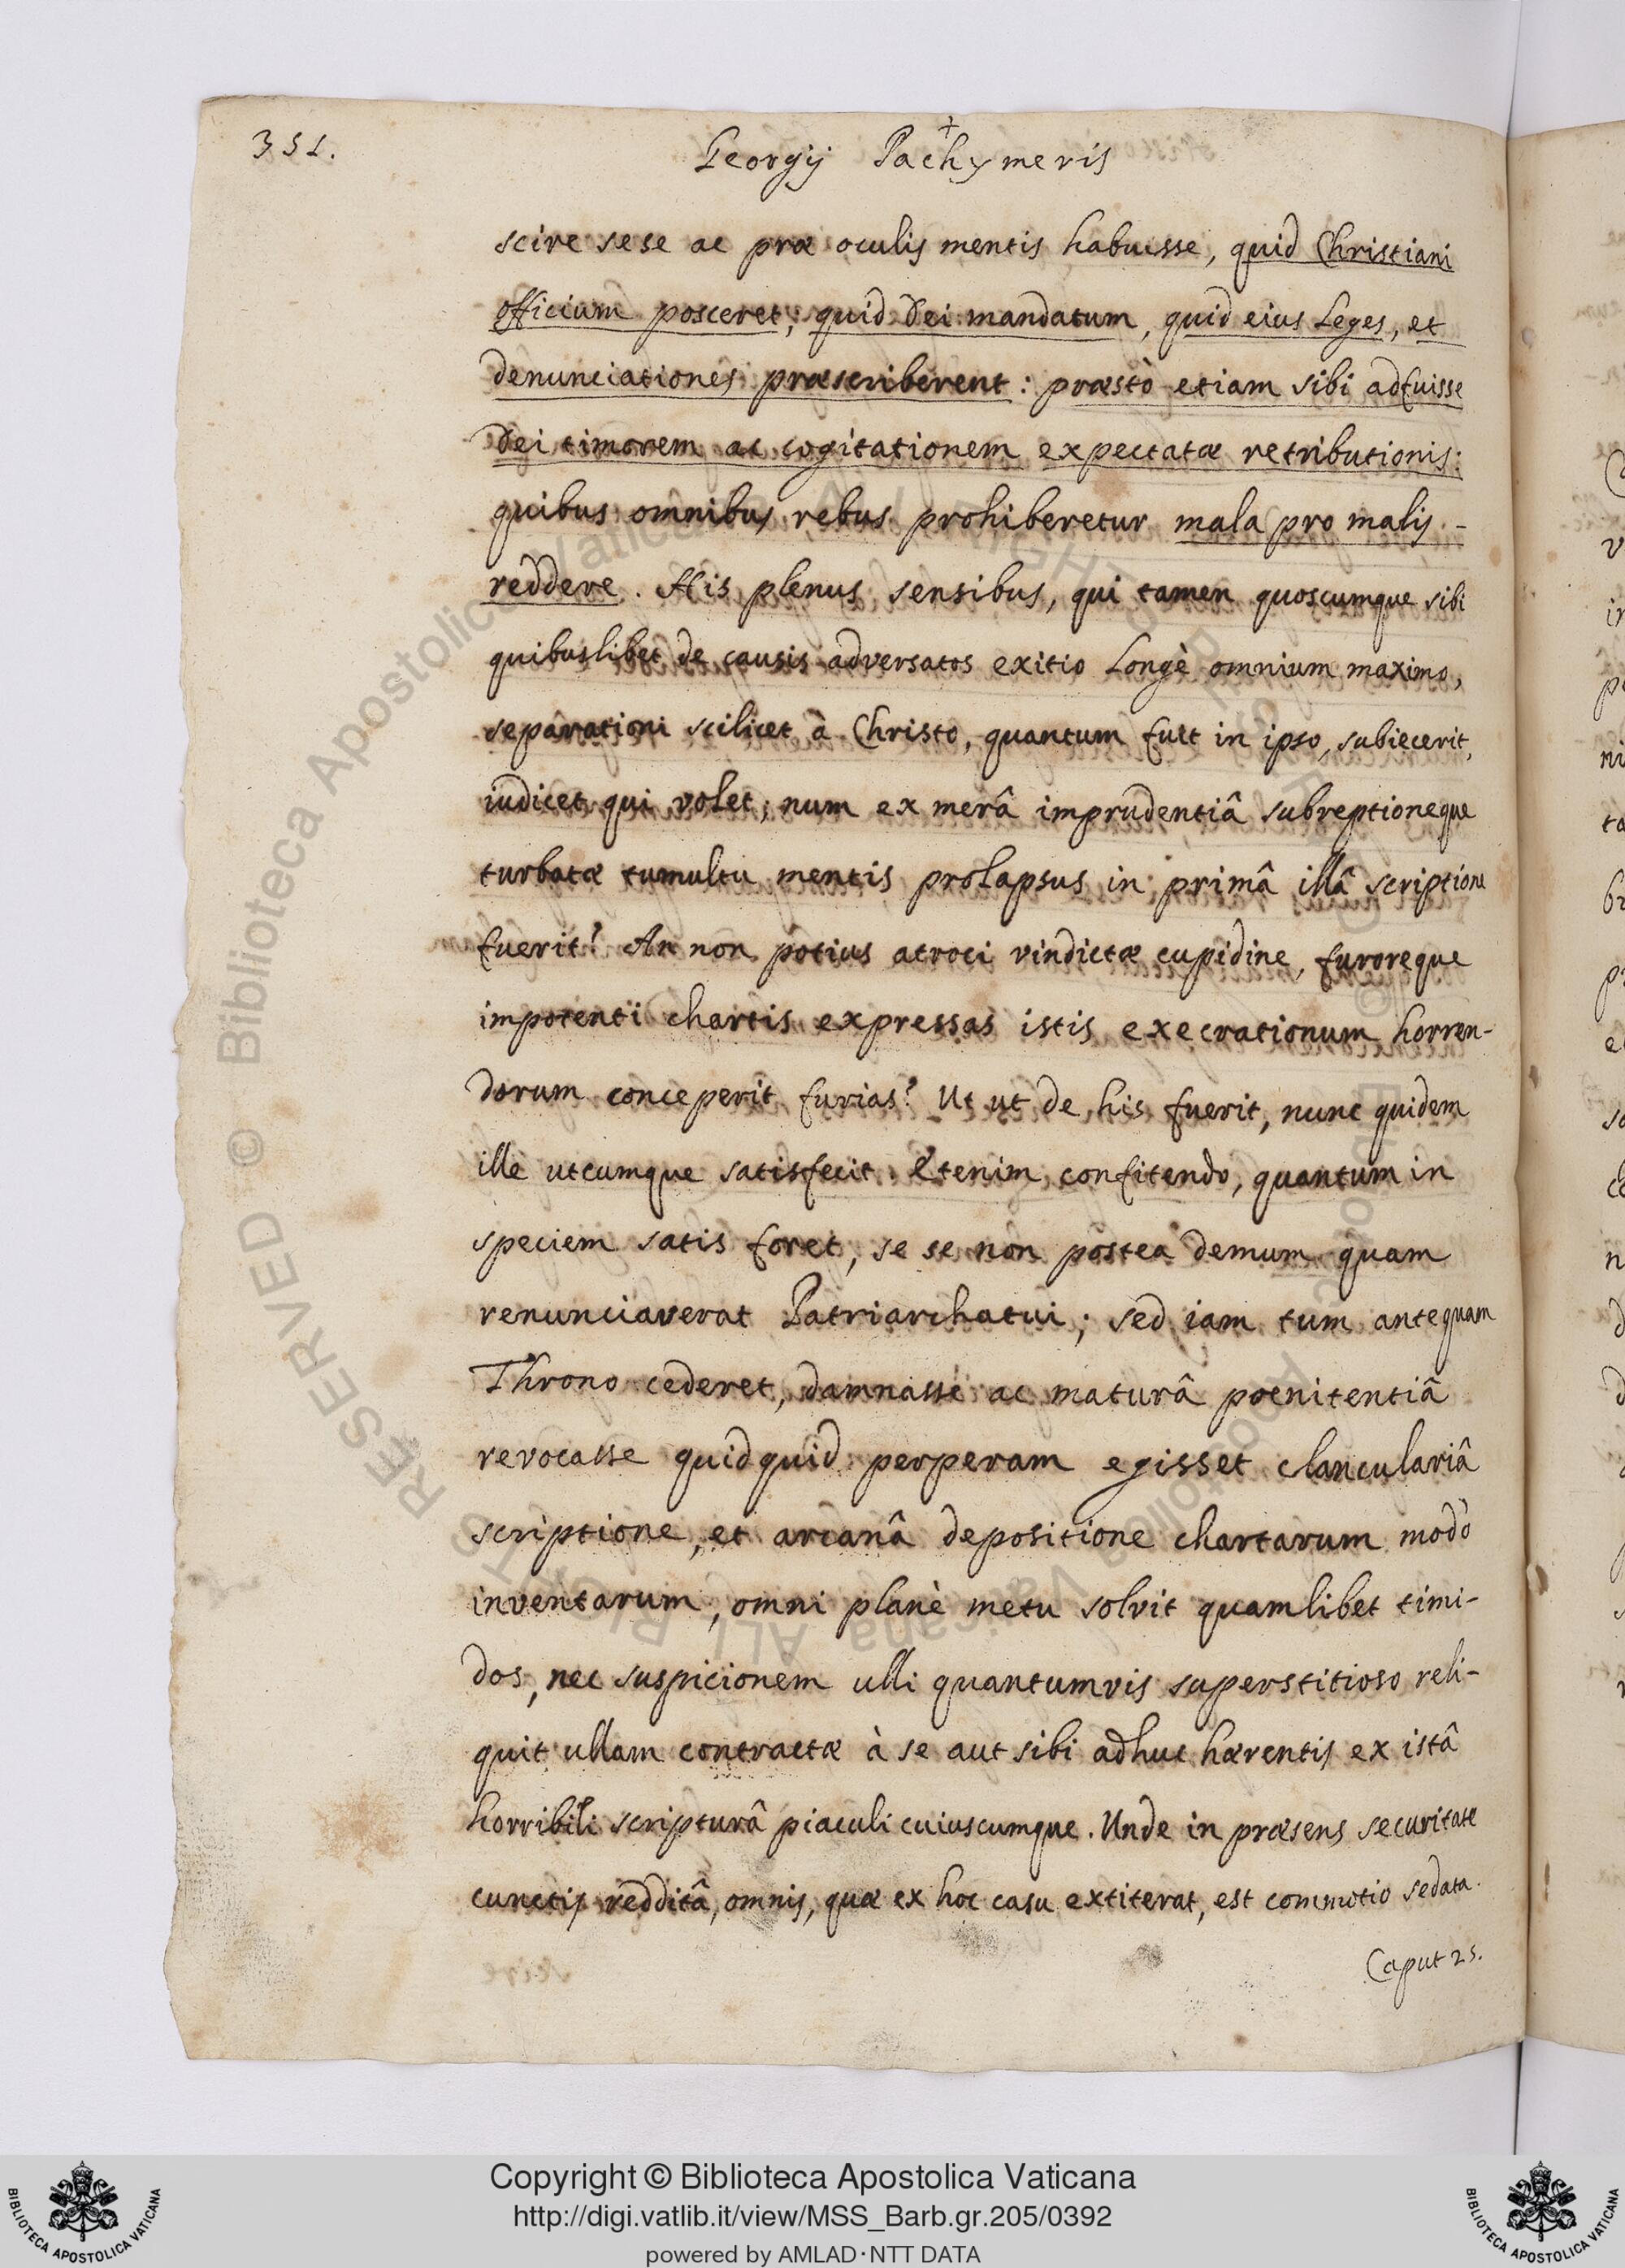 352.
Georgij Pachymeris
scire sese ac præ oculis mentis habuisse, quid Christiani
officium posceret; quid Dei mandatum, quid eius Leges, et
denunciationes præscriberent: præstò etiam sibi adfuisse
Dei timorem ac cogitationem expectatæ retributionis:
quibus omnibus rebus prohiberetur mala pro malis -
reddere. His plenus sensibus, qui tamen quoscumque sibi
quibuslibet de causis adversatos exitio Longè omnium maximo,
separationi scilicet à Christo, quantum fuit in ipso, subiecerit,
iudicet qui volet; num ex merâ imprudentiâ subreptioneque
turbatæ tumultu mentis prolapsus in primâ illâ scriptione
fuerit? An non potius atroci vindictæ cupidine, furoreque
impotenti chartis expressas istis execrationum horren-
dorum conceperit furias? Ut ut de his fuerit, nunc quidem
ille utcumque satisfecit. Etenim confitendo, quantum in
speciem satis foret, se se non postea demum quam
renunciaverat Patriarchatui; sed iam tum antequam
Throno cederet, damnasse ac maturâ poenitentiâ
revocasse quidquid perperam egisset clanculariâ
scriptione, et arcanâ depositione chartarum modò
inventarum, omni planè metu solvit quamlibet timi-
dos, nec suspicionem ulli quantumvis superstitioso reli-
quit ullam contractæ à se aut sibi adhuc hærentis ex istâ
horribili scripturâ piaculi cuiuscumque. Unde in præsens securitate
cunctis redditâ, omnis, quæ ex hoc casu extiterat, est commotio sedata.
Caput 25.
Copyright © Biblioteca Apostolica Vaticana
http://digi.vatlib.it/view/MSS_Barb.gr.205/0392
powered by AMLAD·NTT DATA
BIBLIOTECA APOSTOLICA VATICANA
BIBLIOTECA APOSTOLICA VATICANA